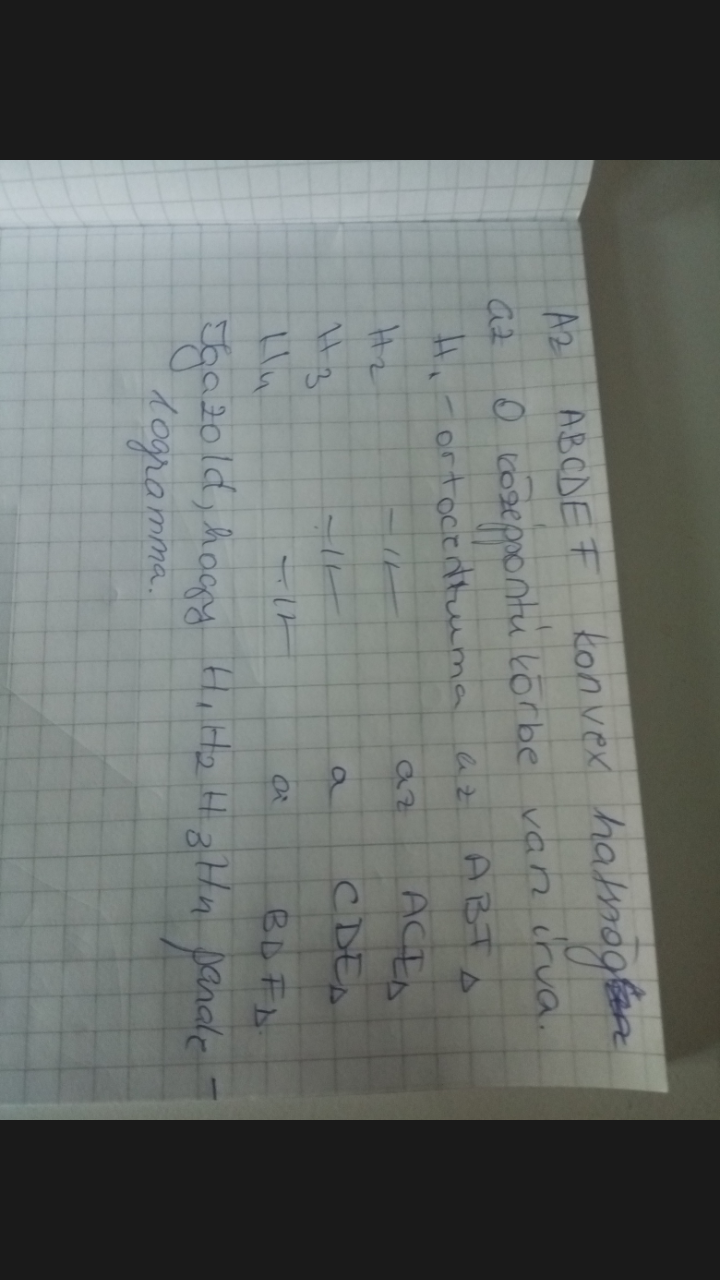 Az ABCDEF konvex hatszög
az O középpontú körbe van írva.
H₁ - ortocentruma az ABF△
H₂ -11- az ACE△
H₃ -11- a CDE△
H₄ -11- a BDF△.
Igazold, hogy H₁H₂H₃H₄ parale-
logramma.